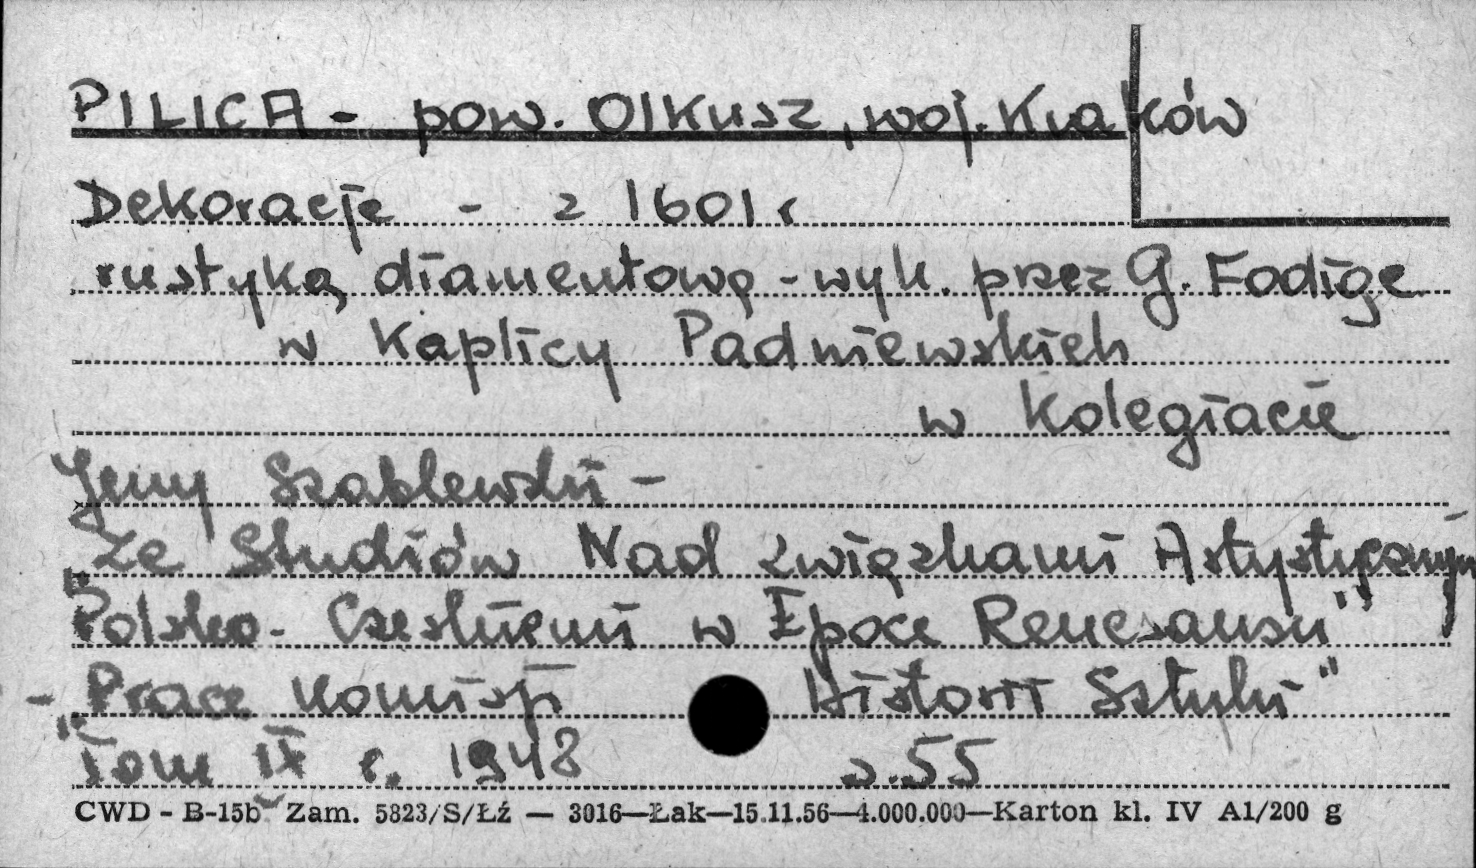 PILICA - pow. Olkusz, woj. Kraków
Dekoracje - z 1601 r
rustyką diamentową - wyk. przez G. Fodige
w Kaplicy Padniewskich
w Kolegiacie
Jerzy Szablewski -
"Ze Studiów Nad Związkami Astystycznym
Polsko - Czeskiemi w Epoce Renesansu"
- "Prace Komisji Historii Sztuki"
Tom IX r. 1948 s. 55
CWD - B-15b Zam. 5823/S/Łź — 3016—Łak—15.11.56—4.000.000—Karton kl. IV A1/200 g